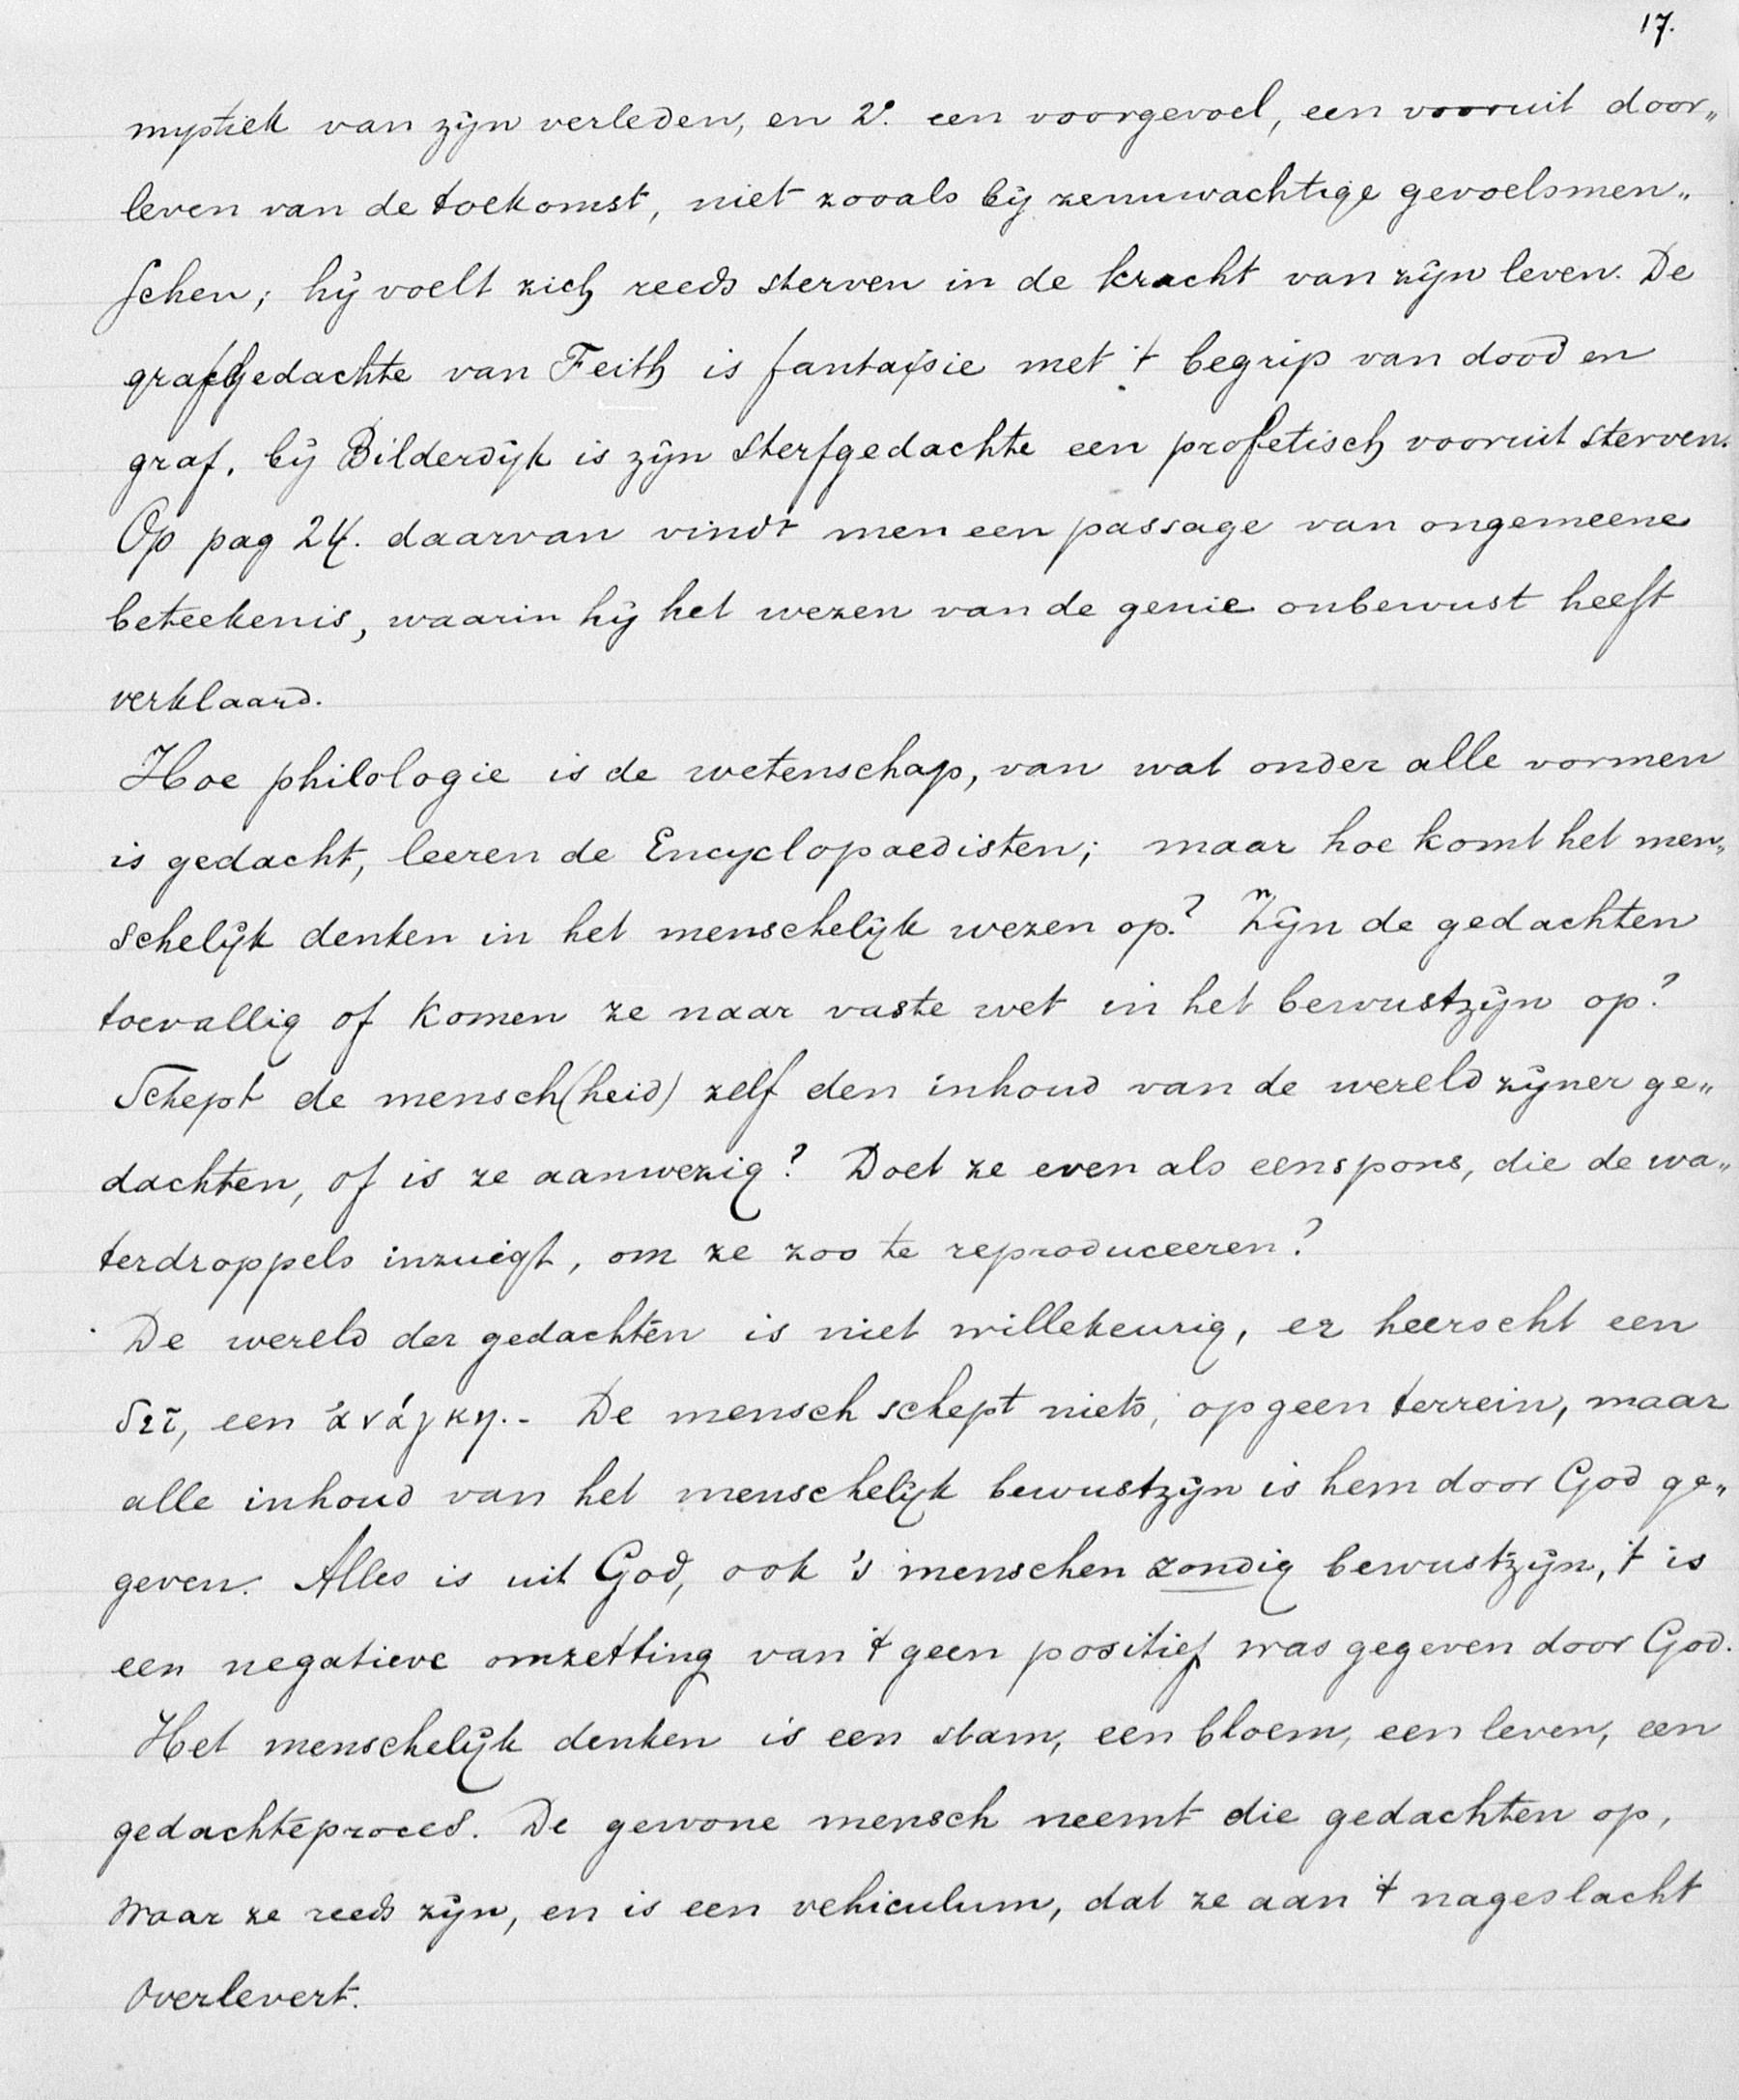 17.
mystiek van zijn verleden, en 2º. een voorgevoel, een vooruit door„
leven van de toekomst, niet zooals bij zenuwachtige gevoelsmen„
schen; hij voelt zich reeds sterven in de kracht van zijn leven. De
grafgedachte van Feith is fantaisie met 't begrip van dood en
graf, bij Bilderdijk is zijn sterfgedachte een profetisch vooruit sterven.
Op pag 24. daarvan vindt men een passage van ongemeene
beteekenis, waarin hij het wezen van de genie onbewust heeft
verklaard.
Hoe philologie is de wetenschap, van wat onder alle vormen
is gedacht, leeren de Encyclopaedisten; maar hoe komt het men„
schelijk denken in het menschelijk wezen op? Zijn de gedachten
toevallig of komen ze naar vaste wet in het bewustzijn op?
Schept de mensch(heid) zelf den inhoud van de wereld zijner ge„
dachten, of is ze aanwezig? Doet ze even als een spons, die de wa„
terdroppels inzuigt, om ze zoo te reproduceeren?
De wereld der gedachten is niet willekeurig, er heerscht een
δεῖ, een ἀνάγκη.- De mensch schept niets, op geen terrein, maar
alle inhoud van het menschelijk bewustzijn is hem door God ge„
geven. Alles is uit God, ook 's menschen zondig bewustzijn, 't is
een negatieve omzetting van 't geen positief was gegeven door God.
Het menschelijk denken is een stam, een bloem, een leven, een
gedachteproces. De gewone mensch neemt die gedachten op,
waar ze reeds zijn, en is een vehiculum, dat ze aan 't nageslacht
overlevert.